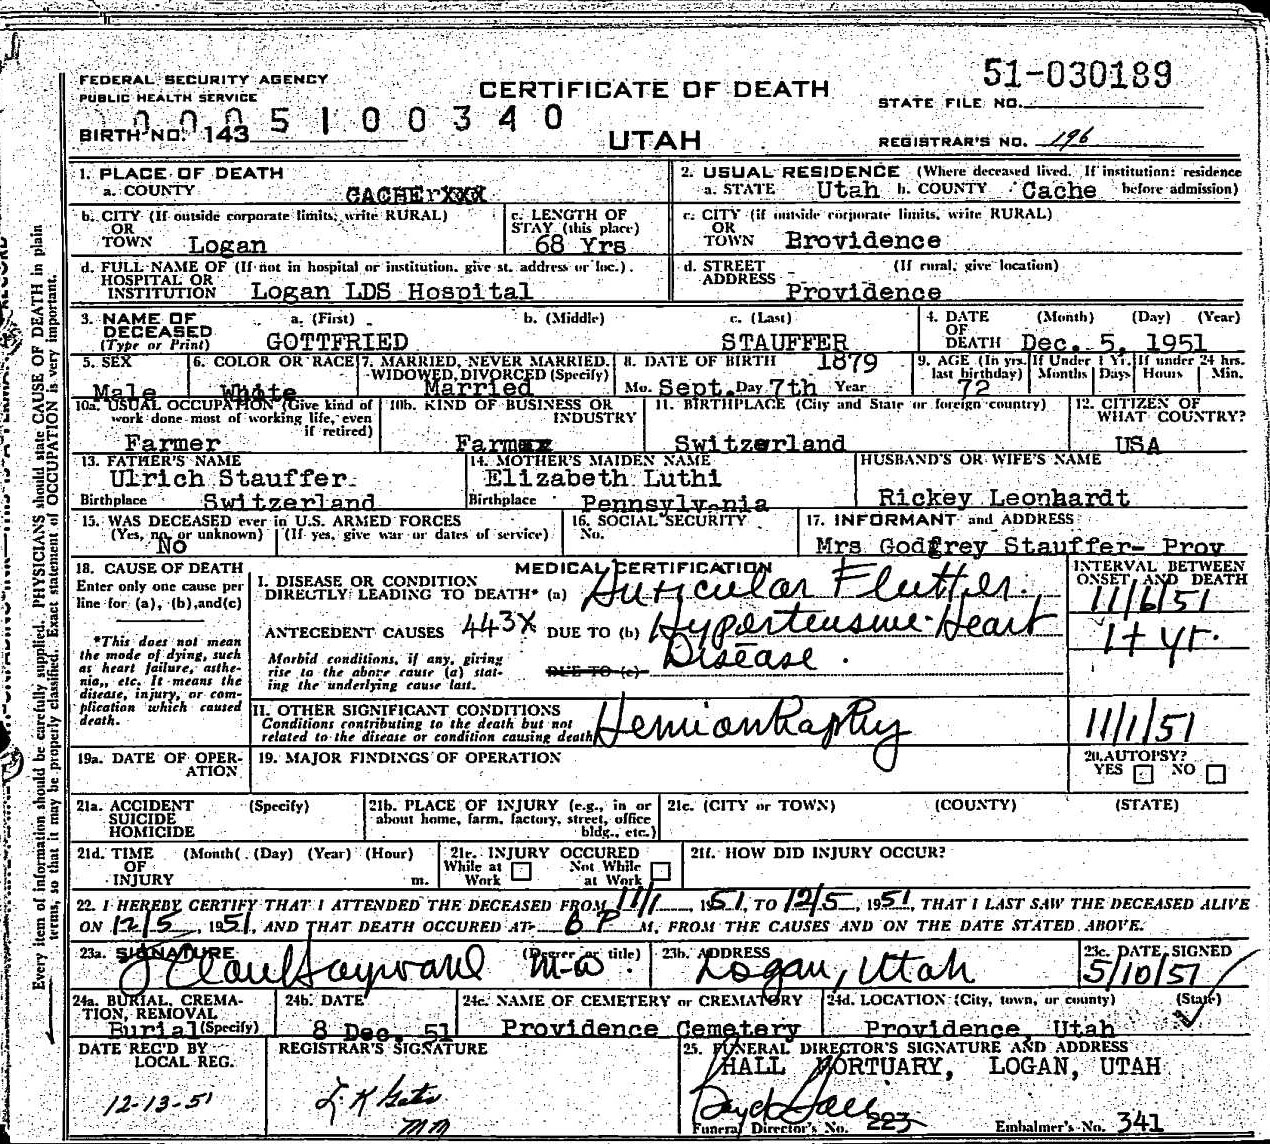 51-030189
FEDERAL SECURITY AGENCY
PUBLIC HEALTH SERVICE
CERTIFICATE OF DEATH
STATE FILE NO.
0005100340
BIRTH NO. 143
UTAH
REGISTRAR'S NO. 196
1. PLACE OF DEATH
a. COUNTY CACHErXXX
2. USUAL RESIDENCE (Where deceased lived. If institution: residence before admission)
a. STATE Utah b. COUNTY Cache
b. CITY (If outside corporate limits, write RURAL)
OR TOWN Logan
c. LENGTH OF STAY (this place) 68 Yrs
c. CITY (if outside corporate limits, write RURAL)
OR TOWN Brovidence
d. FULL NAME OF (If not in hospital or institution, give st. address or loc.)
HOSPITAL OR INSTITUTION Logan LDS Hospital
d. STREET ADDRESS (If rural, give location)
Providence
3. NAME OF DECEASED (Type or Print)
a. (First) b. (Middle) c. (Last)
GOTTFRIED STAUFFER
4. DATE OF DEATH (Month) (Day) (Year)
Dec. 5, 1951
5. SEX Male
6. COLOR OR RACE White
7. MARRIED, NEVER MARRIED, WIDOWED, DIVORCED (Specify) Married
8. DATE OF BIRTH 1879
Mo. Sept. Day 7th Year
9. AGE (In yrs. last birthday) 72
If Under 1 Yr. Months Days
If under 24 hrs. Hours Min.
10a. USUAL OCCUPATION (Give kind of work done most of working life, even if retired)
Farmer
10b. KIND OF BUSINESS OR INDUSTRY
Farmxx
11. BIRTHPLACE (City and State or foreign country)
Switzerland
12. CITIZEN OF WHAT COUNTRY?
USA
13. FATHER'S NAME
Ulrich Stauffer
Birthplace Switzerland
14. MOTHER'S MAIDEN NAME
Elizabeth Luthi
Birthplace Pennsylvania
HUSBAND'S OR WIFE'S NAME
Rickey Leonhardt
15. WAS DECEASED ever in U.S. ARMED FORCES
(Yes, no, or unknown) (If yes, give war or dates of service)
No
16. SOCIAL SECURITY No.
17. INFORMANT and ADDRESS
Mrs Godfrey Stauffer- Prov
18. CAUSE OF DEATH
Enter only one cause per line for (a), (b), and (c)
*This does not mean the mode of dying, such as heart failure, asthenia, etc. It means the disease, injury, or complication which caused death.
MEDICAL CERTIFICATION
I. DISEASE OR CONDITION DIRECTLY LEADING TO DEATH* (a) Auricular Flutter.
ANTECEDENT CAUSES 443X DUE TO (b) Hypertensive Heart
Disease.
Morbid conditions, if any, giving rise to the above cause (a) stating the underlying cause last.
DUE TO (c)
II. OTHER SIGNIFICANT CONDITIONS
Conditions contributing to the death but not related to the disease or condition causing death
Herniorrhaphy
INTERVAL BETWEEN ONSET AND DEATH
11/6/51
1+ yr.
11/1/51
19a. DATE OF OPERATION
19. MAJOR FINDINGS OF OPERATION
20. AUTOPSY?
YES NO
21a. ACCIDENT SUICIDE HOMICIDE (Specify)
21b. PLACE OF INJURY (e.g., in or about home, farm, factory, street, office bldg., etc.)
21c. (CITY or TOWN) (COUNTY) (STATE)
21d. TIME OF INJURY (Month) (Day) (Year) (Hour) m.
21e. INJURY OCCURED
While at Work Not While at Work
21f. HOW DID INJURY OCCUR?
22. I HEREBY CERTIFY THAT I ATTENDED THE DECEASED FROM 11/1, 1951, TO 12/5, 1951, THAT I LAST SAW THE DECEASED ALIVE
ON 12/5, 1951, AND THAT DEATH OCCURED AT 8 P M, FROM THE CAUSES AND ON THE DATE STATED ABOVE.
23a. SIGNATURE (Degree or title)
J Clare Hayward M-D
23b. ADDRESS
Logan, Utah
23c. DATE SIGNED
5/10/51
24a. BURIAL, CREMATION, REMOVAL (Specify)
Burial
24b. DATE
8 Dec. 51
24c. NAME OF CEMETERY or CREMATORY
Providence Cemetery
24d. LOCATION (City, town, or county) (State)
Providence, Utah
DATE REC'D BY LOCAL REG.
12-13-51
REGISTRAR'S SIGNATURE
mm
25. FUNERAL DIRECTOR'S SIGNATURE AND ADDRESS
HALL MORTUARY, LOGAN, UTAH
Funeral Director's No. 223
Embalmer's No. 341
Every item of information should be carefully supplied. PHYSICIANS should state CAUSE OF DEATH in plain
terms, so that it may be properly classified. Exact statement of OCCUPATION is very important.